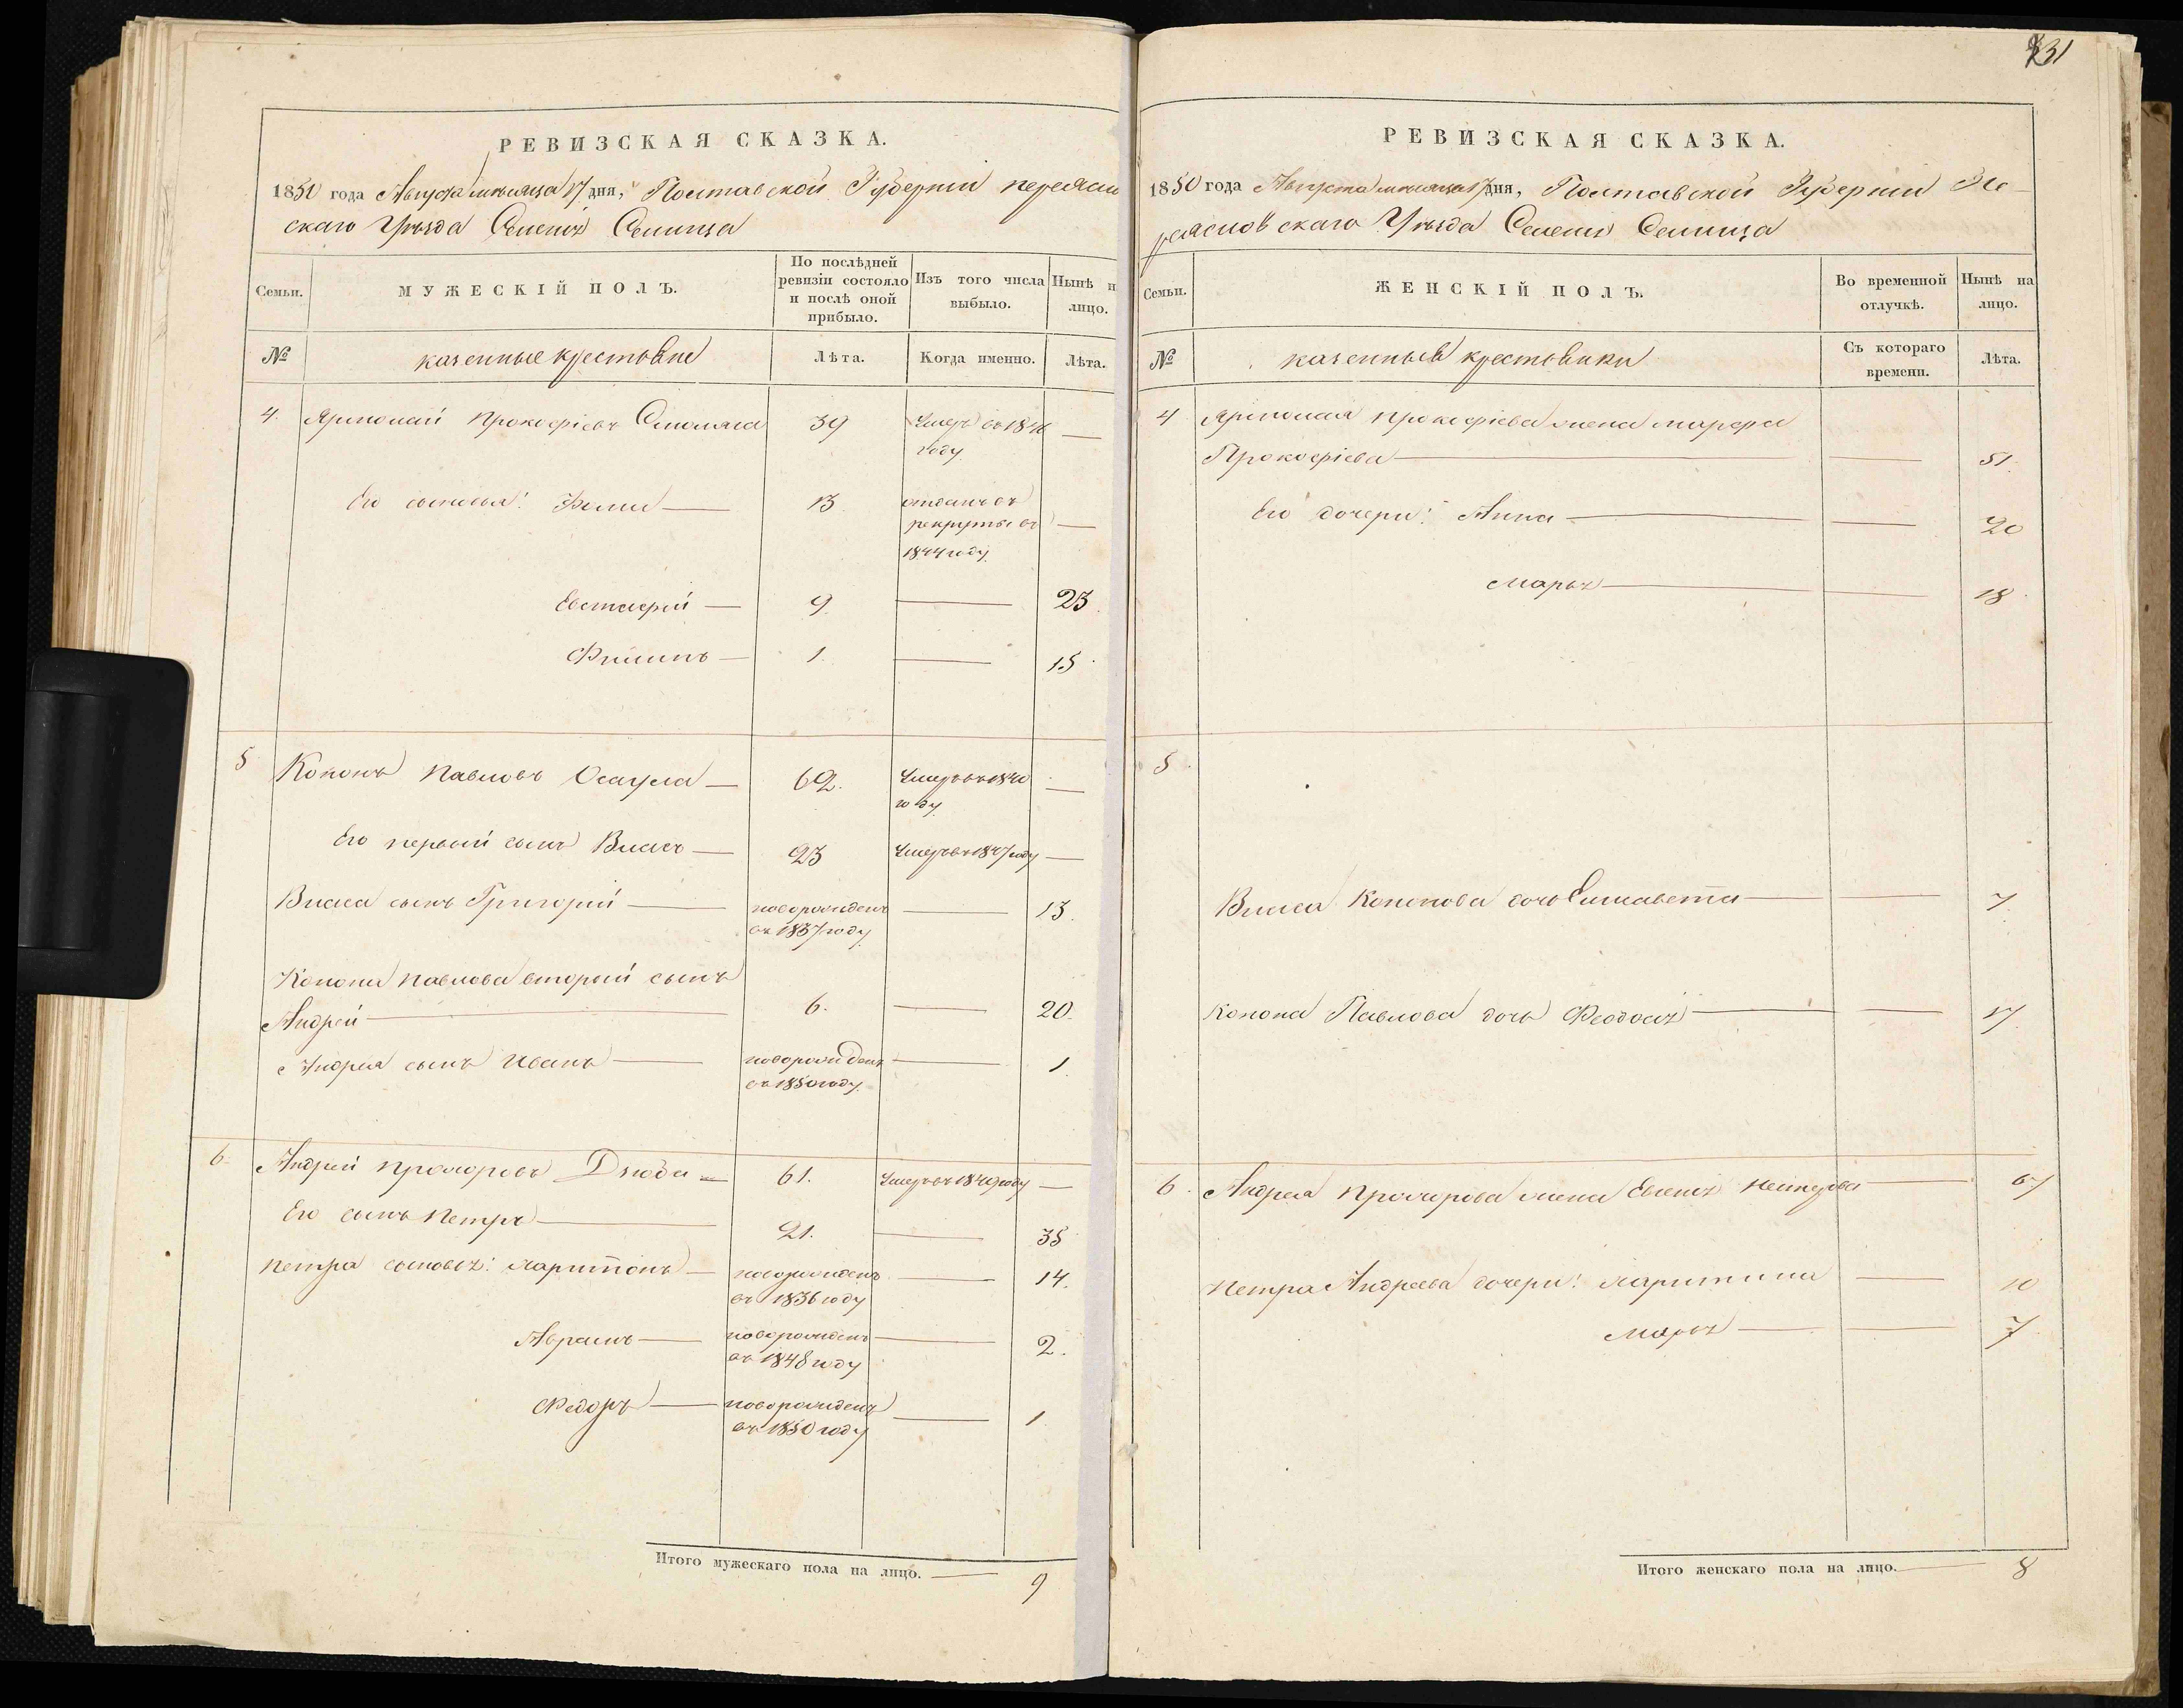 РЕВИЗСКАЯ СКАЗКА.
1850 года Августа месяца 17 дня, Полтавской Губернiи переясло
скаго Уезда Селенiя Селища
Семьи.
МУЖЕСКIЙ ПОЛЪ.
По послѣдней ревизiи состояло и послѣ оной прибыло.
Изъ того числа выбыло.
Нынѣ н лицо.
№
казенные крестьяне
Лѣта.
Когда именно.
Лѣта.
4. Артомай Прокофiевъ 39 Умеръ въ 1846 году —
Его сыновья: Фома — 13 отданъ въ рекруты въ 1844 году —
Евстафiй — 9. — 23.
Филипъ — 1. — 15.
5 Кононъ Павловъ Осаула — 62. Умеръ въ 1840 году —
Его первый сынъ Власъ — 23 Умеръ въ 1847 году —
Власа сынъ Григорiй — новорожденъ въ 1837 году — 13.
Конона Павлова вторый сынъ
Андрей — 6. — 20.
Андрея сынъ Иванъ — новорожденъ въ 1850 году — 1
6. Андрей Прохоровъ Дзюба — 61. Умеръ въ 1849 году —
Его сынъ Петръ — 21. — 35
Петра сыновья: Харитонъ — новорожденъ въ 1836 году — 14.
Абрамъ — новорожденъ въ 1848 году — 2.
Федоръ — новорожденъ въ 1850 году — 1
Итого мужескаго пола на лицо. — 9
231
РЕВИЗСКАЯ СКАЗКА.
1850 года Августа месяца 17 дня, Полтавской Губернiи Пе-
реяславскаго Уезда Селенiя Селища
Семьи.
ЖЕНСКIЙ ПОЛЪ.
Во временной отлучкѣ.
Нынѣ на лицо.
№
казенныя крестьянки
Съ котораго времени.
Лѣта.
4 Прокофiева жена Марфа
Прокофiева — — 51.
Его дочери: Анна — — 20
Марья — — 18.
5.
Власа Кононова дочь Елисавета — — 7.
Конона Павлова дочь Феодосiя — — 17
6. Андрея Прохорова жена Евгенiя Нестерова — 67
Петра Андреева дочери: Харитина — 10
Марья — — 7.
Итого женскаго пола на лицо. — 8